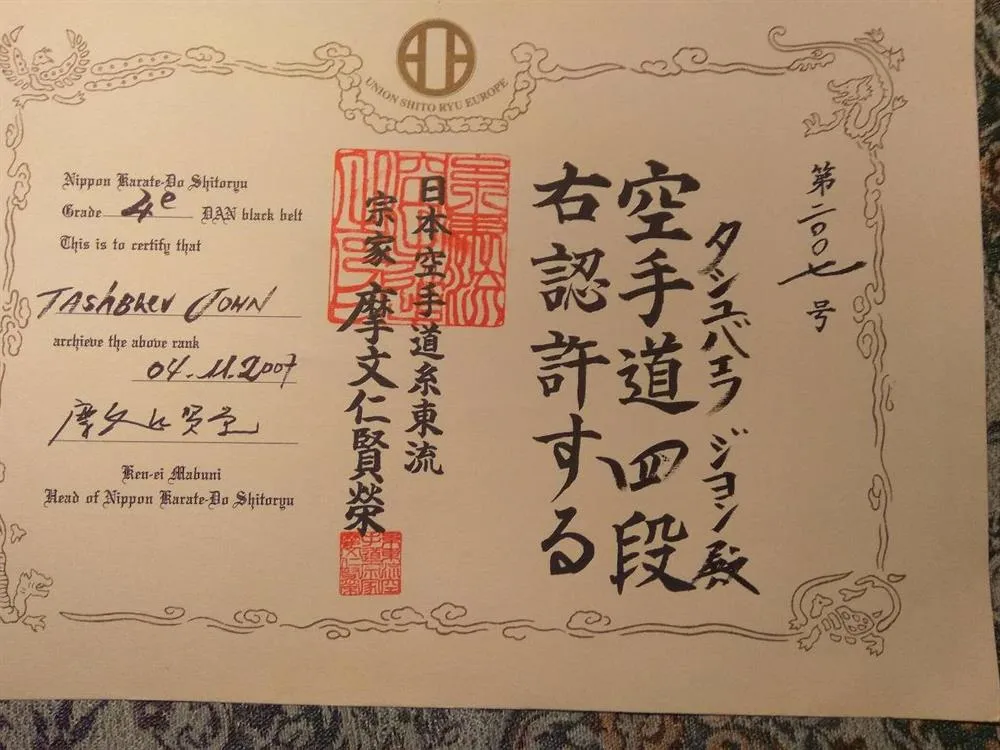 UNION SHITO RYU EUROPE
Nippon Karate-Do Shitoryu
Grade 4e DAN black belt
This is to certify that
TAShBAEV JOHN
archieve the above rank
04.11.2007
摩文仁賢榮
Ken-ei Mabuni
Head of Nippon Karate-Do Shitoryu
第二〇〇七号
タシュバエフ ジヨン殿
空手道四段
右認許する
日本空手道糸東流
宗家 摩文仁賢榮